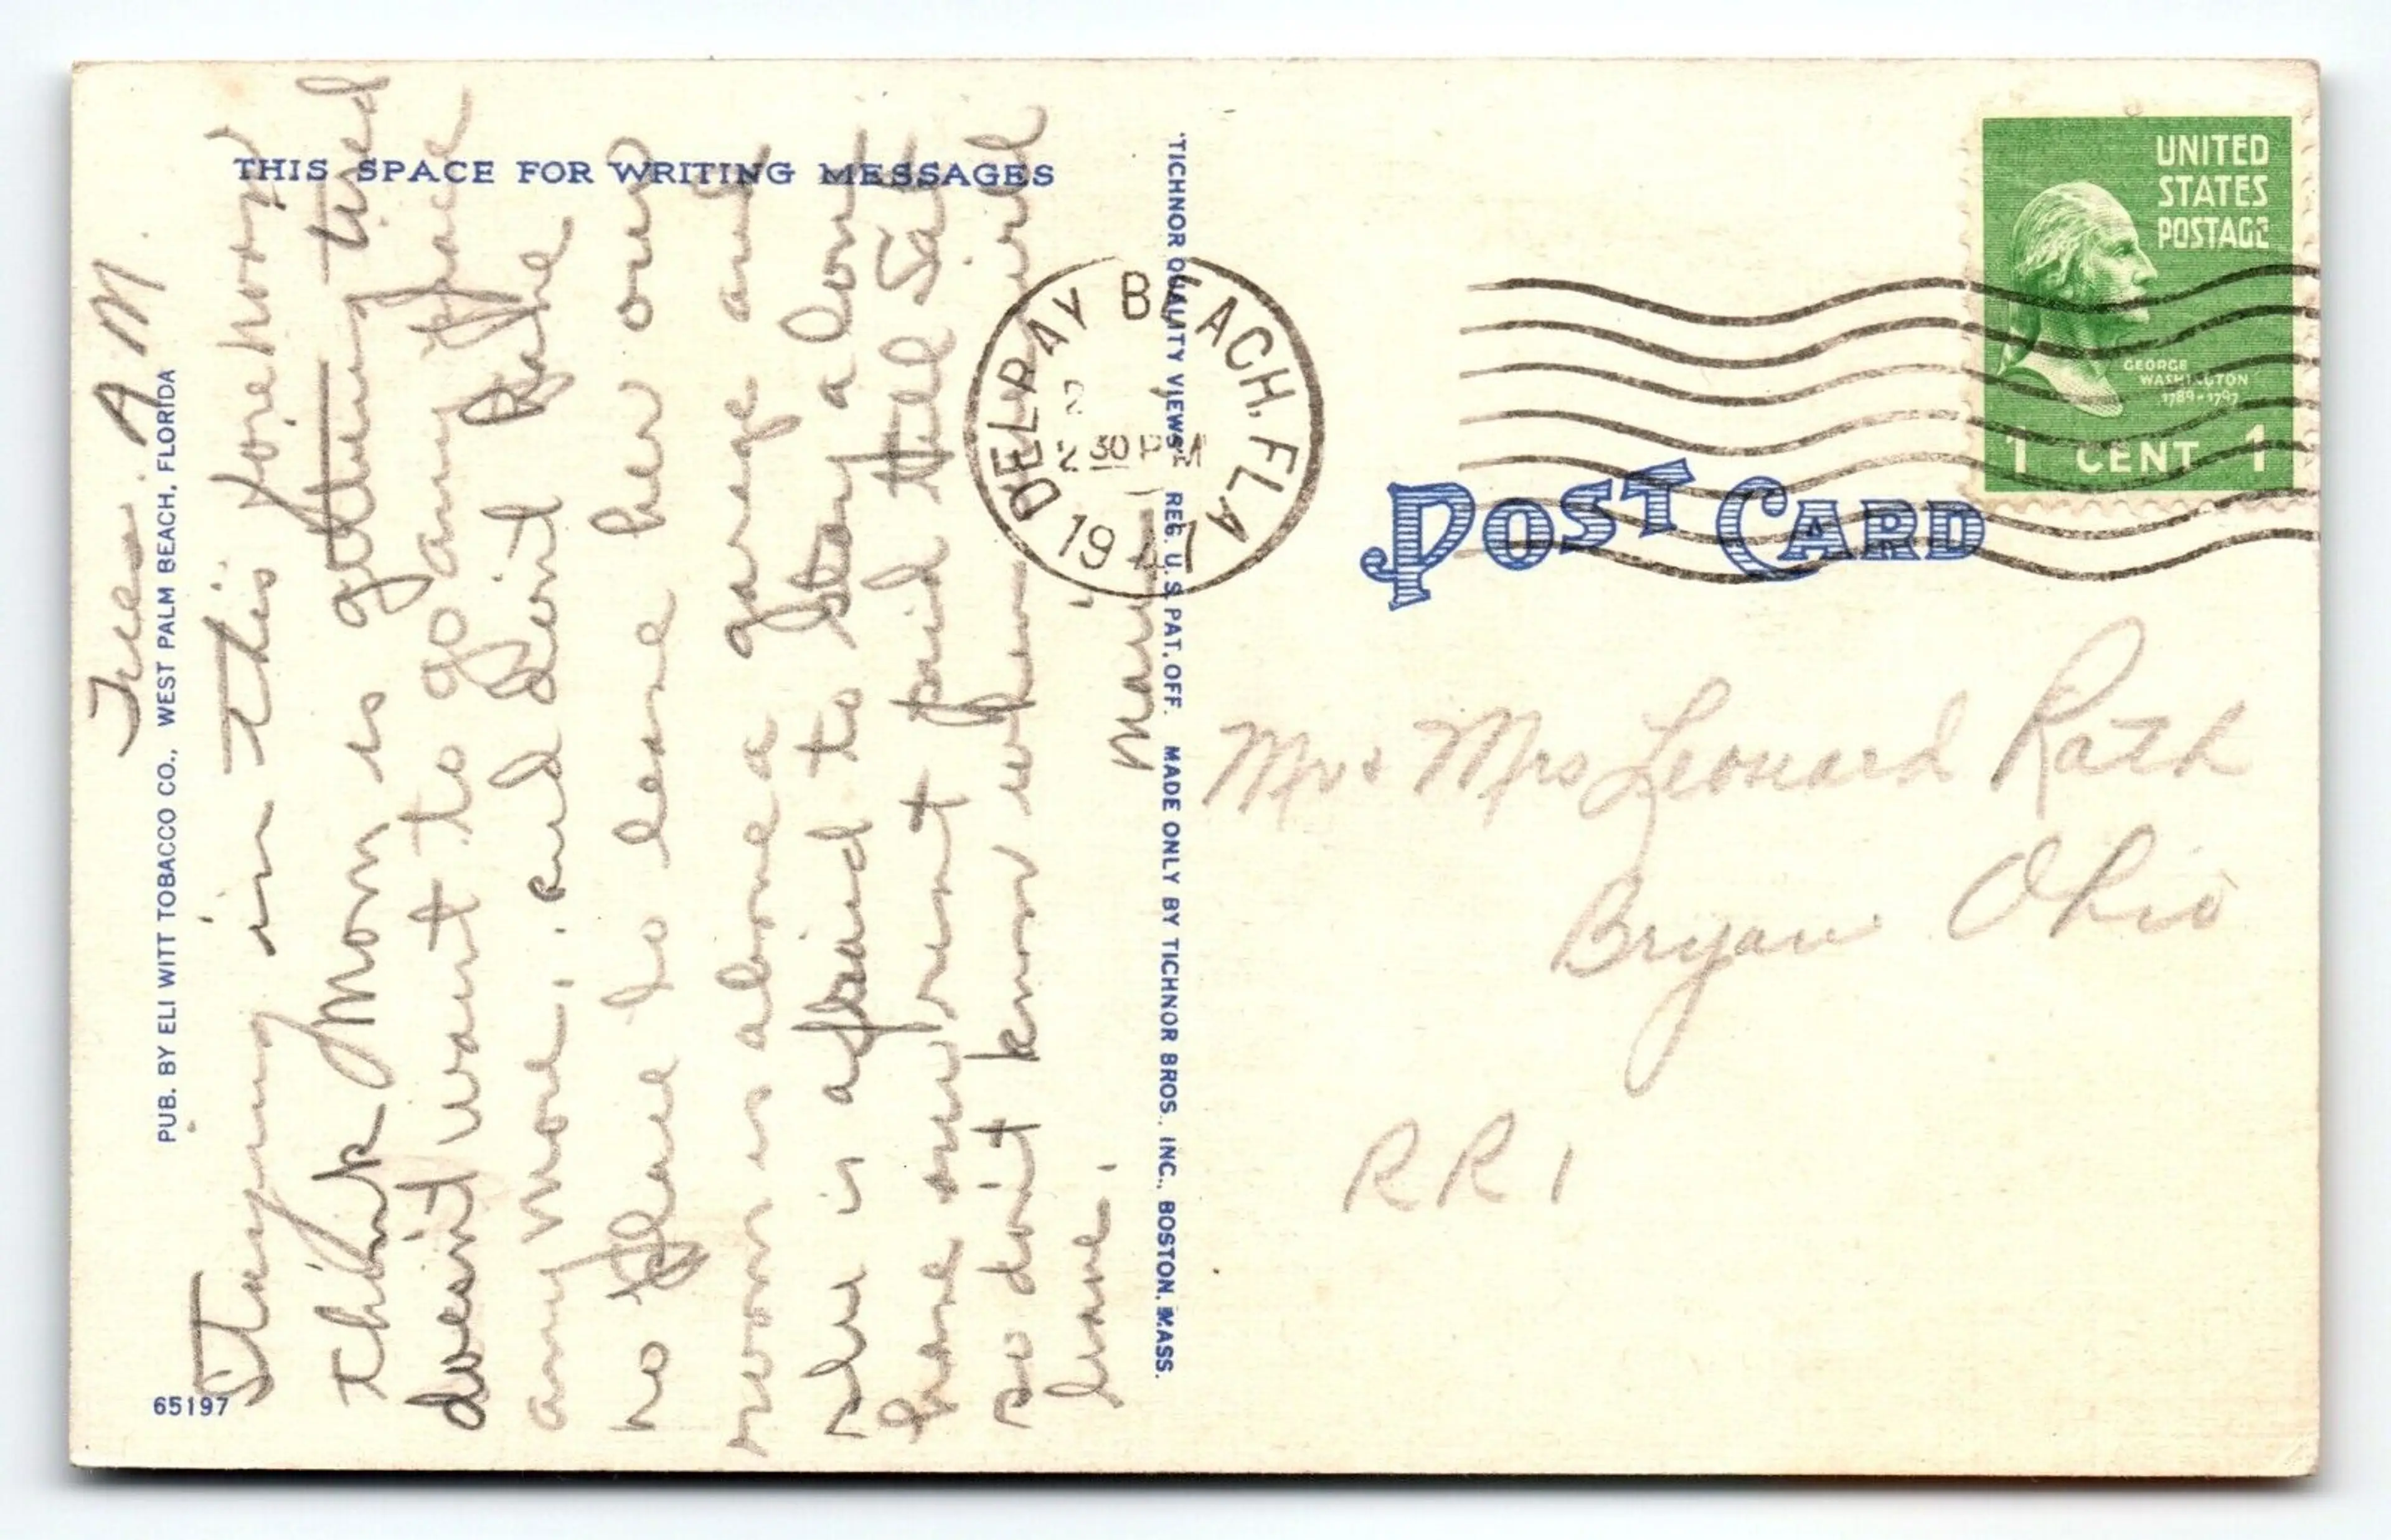 THIS SPACE FOR WRITING MESSAGES
Tues. A M.
Staying in this forenoon
think Mom is getting tired
doesn't want to go any place
any more, and don't like
no place to leave her our
room is above a garage and
she is afraid to stay alone
have our rent paid till Sat
so don't know when will
leave.
Mom
PUB. BY ELI WITT TOBACCO CO., WEST PALM BEACH, FLORIDA
65197
"TICHNOR QUALITY VIEWS" REG. U. S. PAT. OFF. MADE ONLY BY TICHNOR BROS. INC., BOSTON, MASS.
DELRAY BEACH, FLA
2
2 30 PM
1947
UNITED
STATES
POSTAGE
GEORGE
WASHINGTON
1789-1797
1 CENT 1
POST CARD
Mr & Mrs Leonard Rath
Bryan Ohio
RR 1